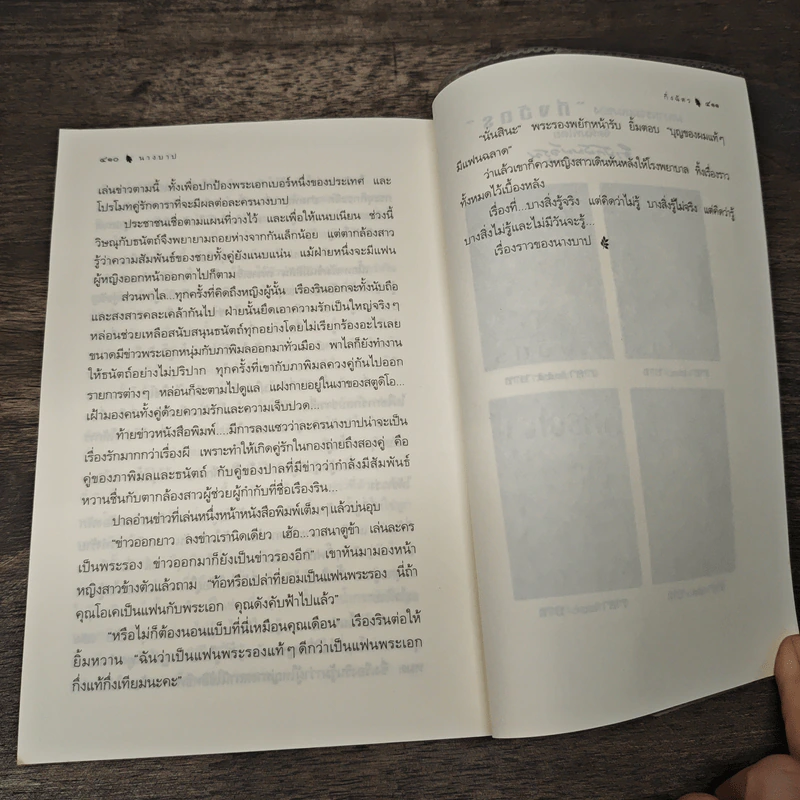 ๔๑๐ นางบาป
เล่นข่าวตามนี้ ทั้งเพื่อปกป้องพระเอกเบอร์หนึ่งของประเทศ และ
โปรโมทคู่รักดาราที่จะมีผลต่อละครนางบาป
ประชาชนเชื่อตามแผนที่วางไว้ และเพื่อให้แนบเนียน ช่วงนี้
วิษณุกับธนัตถ์จึงพยายามถอยห่างจากกันเล็กน้อย แต่ตากล้องสาว
รู้ว่าความสัมพันธ์ของชายทั้งคู่ยังแนบแน่น แม้ฝ่ายหนึ่งจะมีแฟน
ผู้หญิงออกหน้าออกตาไปก็ตาม
ส่วนพาไล...ทุกครั้งที่คิดถึงหญิงผู้นั้น เรืองรินออกจะทั้งนับถือ
และสงสารคละเคล้ากันไป ฝ่ายนั้นยึดเอาความรักเป็นใหญ่จริงๆ
หล่อนช่วยเหลือสนับสนุนธนัตถ์ทุกอย่างโดยไม่เรียกร้องอะไรเลย
ขนาดมีข่าวพระเอกหนุ่มกับภาพิมลออกมาทั่วเมือง พาไลก็ยังทำงาน
ให้ธนัตถ์อย่างไม่ปริปาก ทุกครั้งที่เขากับภาพิมลควงคู่กันไปออก
รายการต่างๆ หล่อนก็จะตามไปดูแล แฝงกายอยู่ในเงาของสตูดิโอ...
เฝ้ามองคนทั้งคู่ด้วยความรักและความเจ็บปวด...
ท้ายข่าวหนังสือพิมพ์...มีการลงแซวว่าละครนางบาปน่าจะเป็น
เรื่องรักมากกว่าเรื่องผี เพราะทำให้เกิดคู่รักในกองถ่ายถึงสองคู่ คือ
คู่ของภาพิมลและธนัตถ์ กับคู่ของปาลที่มีข่าวว่ากำลังมีสัมพันธ์
หวานชื่นกับตากล้องสาวผู้ช่วยผู้กำกับที่ชื่อเรืองริน...
ปาลอ่านข่าวที่เล่นหนึ่งหน้าหนังสือพิมพ์เต็มๆ แล้วบ่นอุบ
“ข่าวออกยาว ลงข่าวเรานิดเดียว เฮ้อ...วาสนาตูข้า เล่นละคร
เป็นพระรอง ข่าวออกมาก็ยังเป็นข่าวรองอีก” เขาหันมามองหน้า
หญิงสาวข้างตัวแล้วถาม “ท้อหรือเปล่าที่ยอมเป็นแฟนพระรอง นี่ถ้า
คุณโอเคเป็นแฟนกับพระเอก คุณดังคับฟ้าไปแล้ว”
“หรือไม่ก็ต้องนอนแบ็บที่นี่เหมือนคุณเดือน” เรืองรินต่อให้
ยิ้มหวาน “ฉันว่าเป็นแฟนพระรองแท้ๆ ดีกว่าเป็นแฟนพระเอก
กึ่งแท้กึ่งเทียมนะคะ”
กิ่งฉัตร ๔๑๑
“นั่นสินะ” พระรองพยักหน้ารับ ยิ้มตอบ “บุญของผมแท้ๆ
มีแฟนฉลาด”
ว่าแล้วเขาก็ควงหญิงสาวเดินหันหลังให้โรงพยาบาล ทิ้งเรื่องราว
ทั้งหมดไว้เบื้องหลัง
เรื่องที่...บางสิ่งรู้จริง แต่คิดว่าไม่รู้ บางสิ่งรู้ไม่จริง แต่คิดว่ารู้
บางสิ่งไม่รู้และไม่มีวันจะรู้...
เรื่องราวของนางบาป